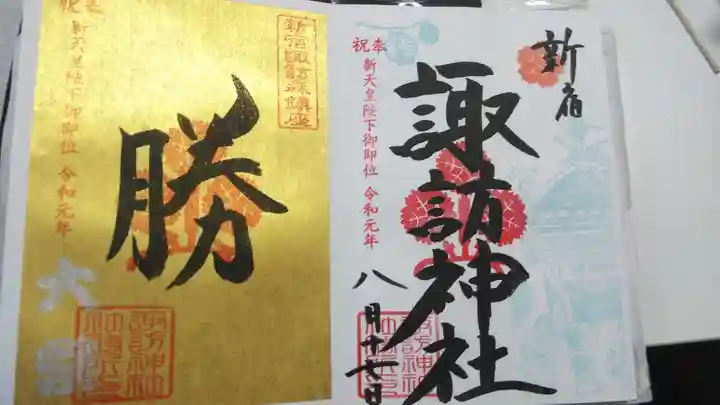 奉祝
新天皇陛下御即位 令和元年
新宿
諏訪神社
八月十七日
奉祝
新天皇陛下御即位 令和元年
新宿諏訪森鎮座
勝